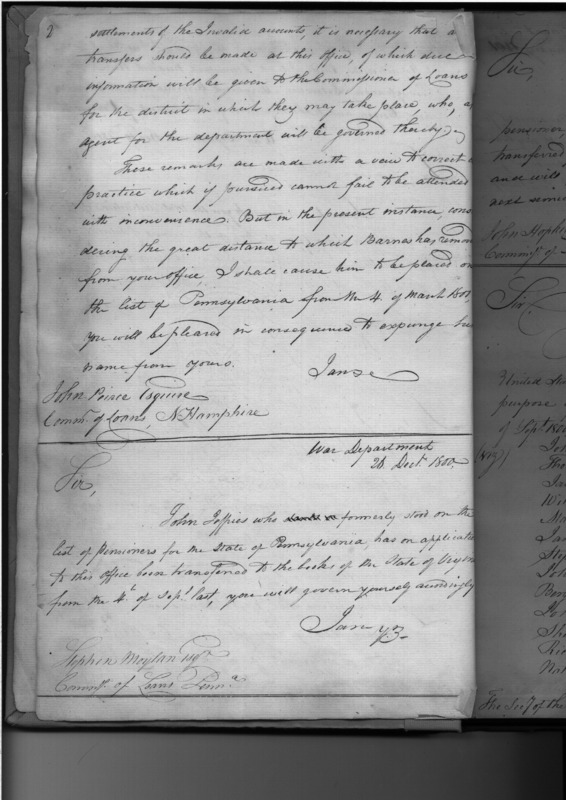 2
settlements of the Invalid accounts, it is necessary that a
transfers should be made at this office, of which due
information will be given to the Commissioner of Loans
for the district in which they may take place, who, as
agent for the department will be governed thereby.
These remarks are made with a view to correct a
practice which if pursued cannot fail to be attended
with inconvenience. But in the present instance, cons
dering the great distance to which Barnes has remov
from your office, I shall cause him to be placed on
the list of Pennsylvania from the 4. of March 1800,
you will be pleased in consequence to expunge his
name from yours.
I am &c
John Peirce Esquire
Commr. of Loans, N. Hampshire
War Department
26 Decr. 1800,
Sir,
John Jeffries who formerly stood on the
list of Pensioners for the State of Pennsylvania, has on applicatio
to this office been transferred to the books of the State of Virgin
from the 4th of Sept. last, you will govern yourself accordingly
I am
Stephen Moylan Esqr.
Commr. of Loans Penna.
Sir,
pensioner,
transferred
and will
next semi
John Hopki
Commr. of
Sir,
United Sta
purpose
of Sept. 180
The Secy of the